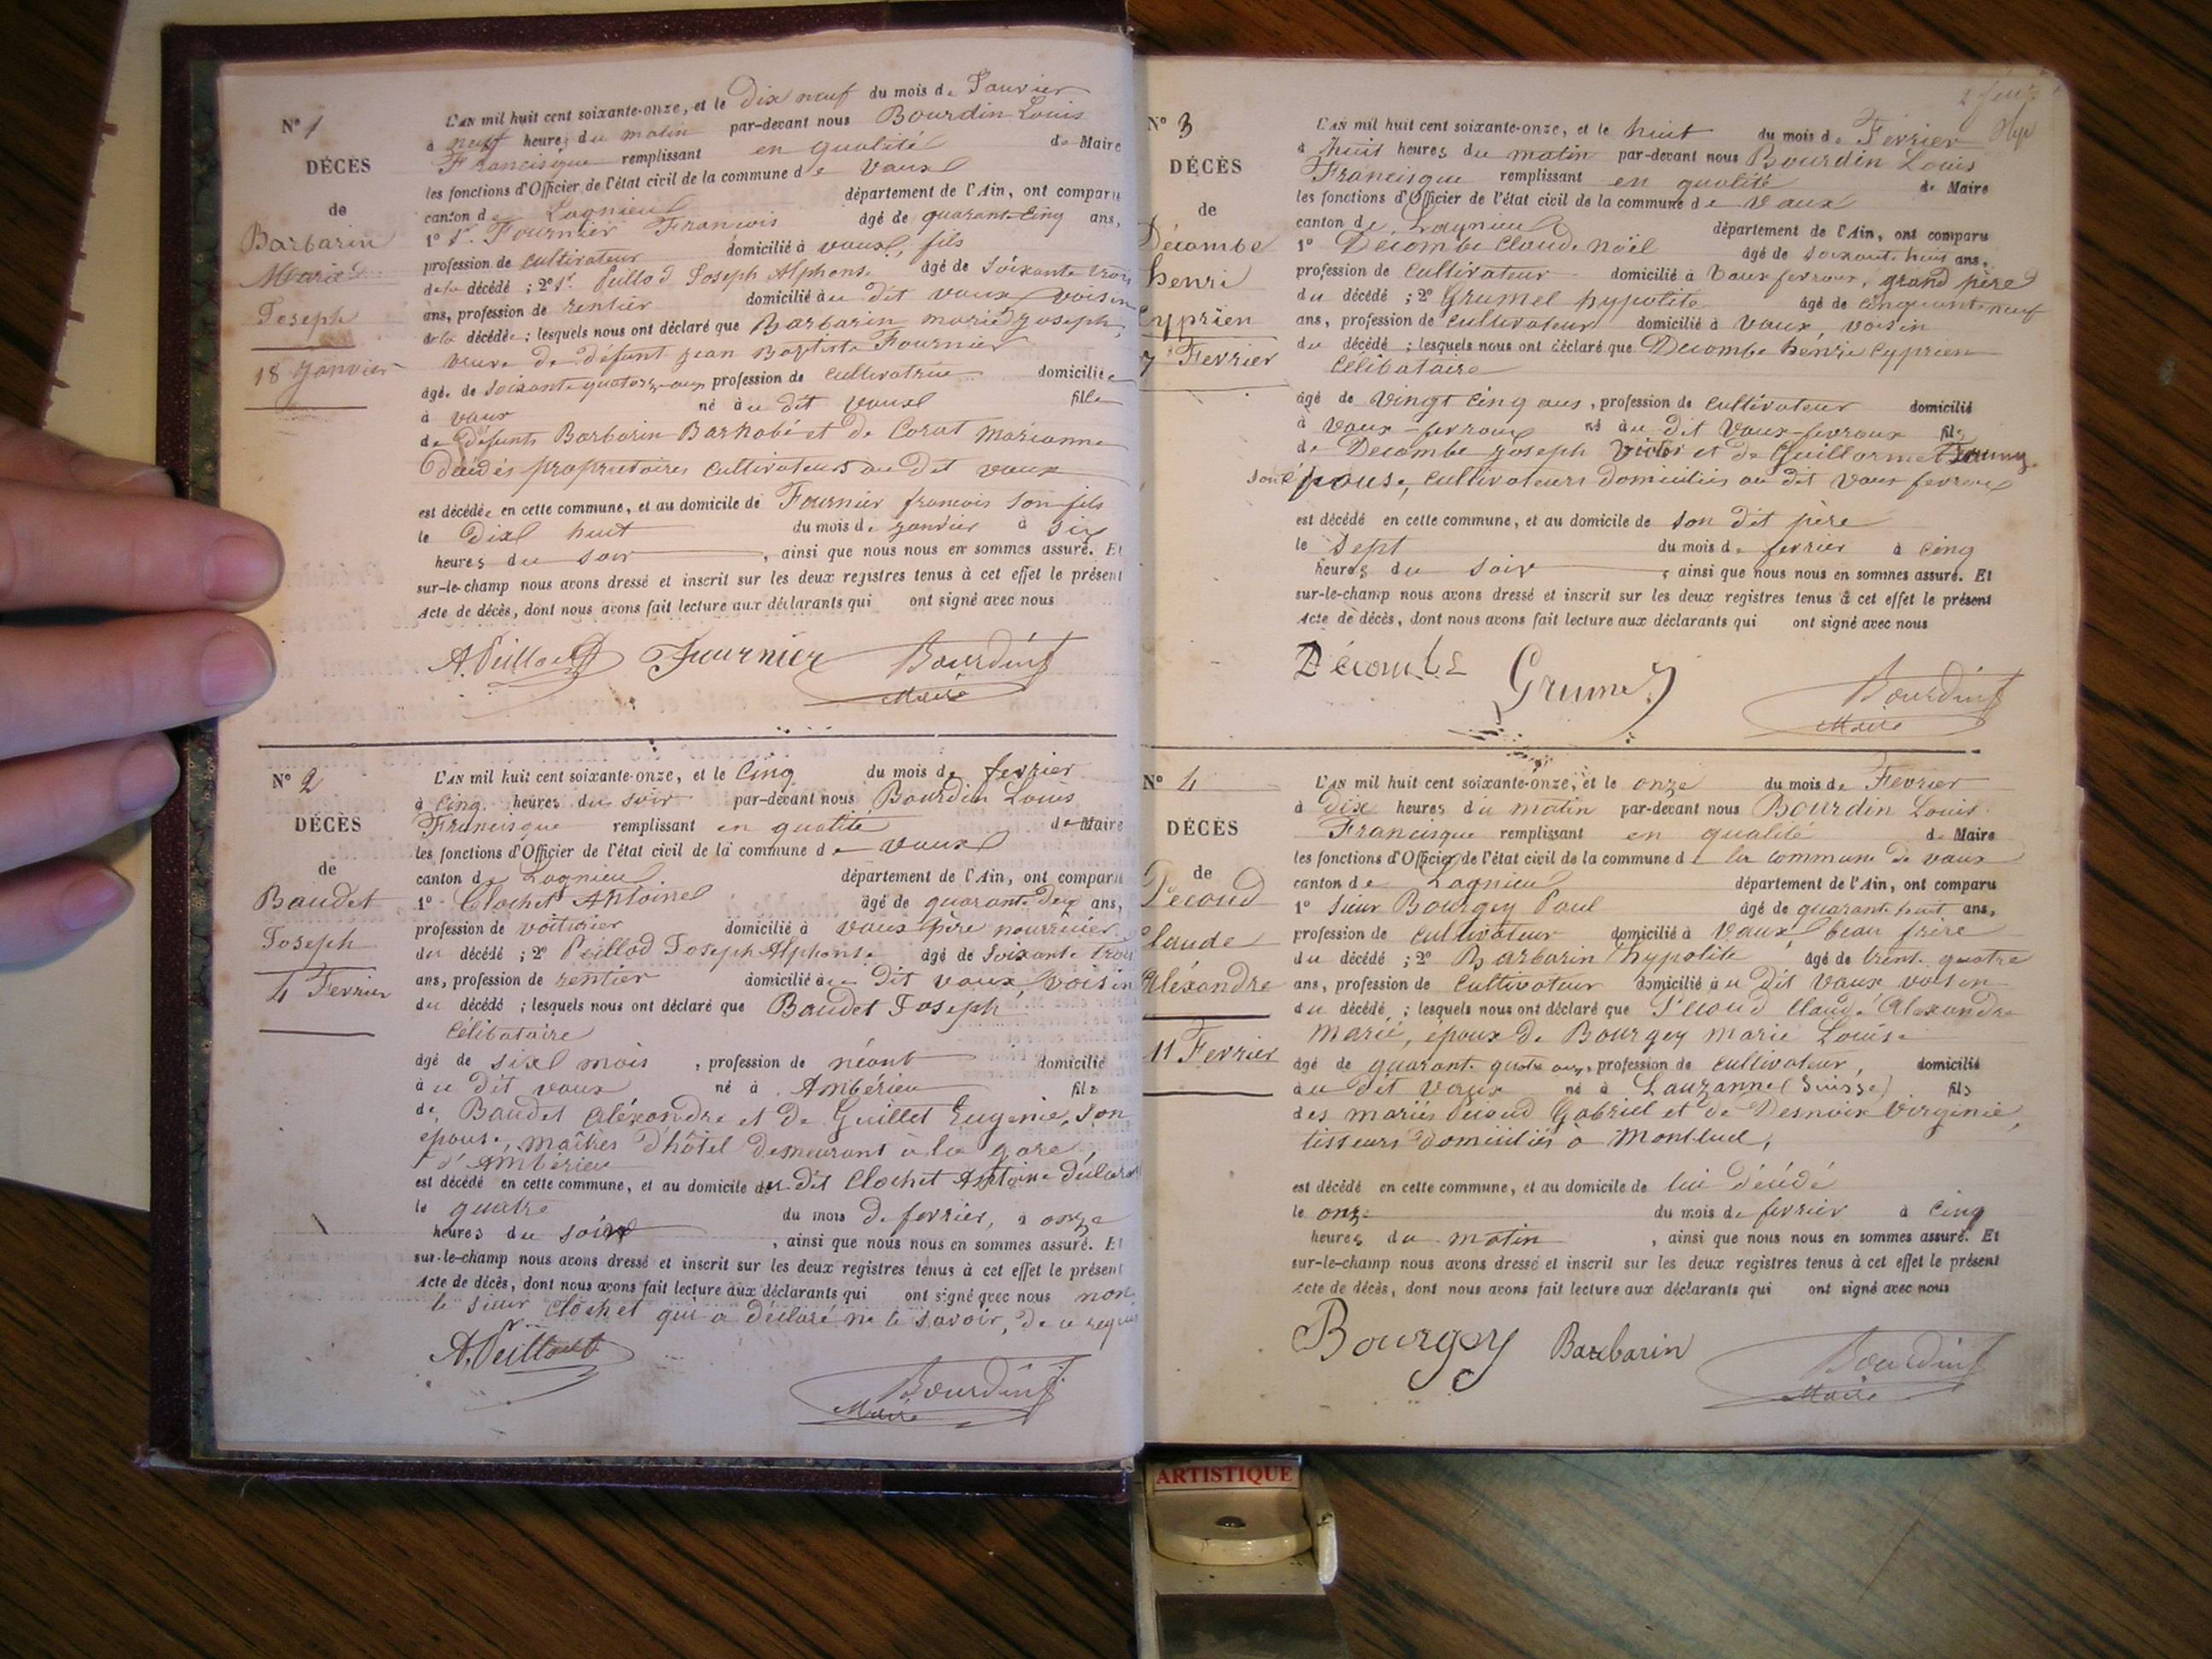 N° 1
DÉCÈS
de
Barbarin
Marie
Joseph
18 janvier
L'AN mil huit cent soixante-onze, et le Dix neuf du mois de Janvier
à neuf heures du matin par-devant nous Bourdin Louis
Francisque remplissant en qualité de Maire
les fonctions d'Officier de l'état civil de la commune de Vaux
canton de Lagnieu département de l'Ain, ont comparu
1° Sr. Fournier Francois âgé de quarante Cinq ans,
profession de cultivateur domicilié à vaux, fils
de la décédé ; 2° Sr. Peillod Joseph Alphonse âgé de Soixante trois
ans, profession de rentier domicilié au dit vaux, voisin
de la décédée ; lesquels nous ont déclaré que Barbarin marie Joseph,
veuve de défunt jean Baptiste Fournier
âgée de soixante quatorze ans profession de cultivatrice domiciliée
à vaux né au dit vaux fille
de défunts Barbarin Barnabé et de Corat Marianne
Décédés propriétaires cultivateurs au dit vaux
est décédée en cette commune, et au domicile de Fournier francois son fils
le Dix huit du mois de janvier à six
heures du soir, ainsi que nous nous en sommes assuré. Et
sur-le-champ nous avons dressé et inscrit sur les deux registres tenus à cet effet le présent
Acte de décès, dont nous avons fait lecture aux déclarants qui ont signé avec nous
A. Peillod Fournier Bourdin
Maire
N° 2
DÉCÈS
de
Baudet
Joseph
4 Fevrier
L'AN mil huit cent soixante-onze, et le Cinq du mois de fevrier
à Cinq heures du soir par-devant nous Bourdin Louis
Francisque remplissant en qualité de Maire
les fonctions d'Officier de l'état civil de la commune de vaux
canton de Lagnieu département de l'Ain, ont comparu
1° Clochet Antoine âgé de quarante Deux ans,
profession de voiturier domicilié à vaux père nourricier
du décédé ; 2° Peillod Joseph Alphonse âgé de Soixante trois
ans, profession de rentier domicilié au dit vaux, voisin
du décédé ; lesquels nous ont déclaré que Baudet Joseph
Célibataire
âgé de six mois, profession de néant domicilié
au dit vaux né à Ambérieu fils
de Baudet Aléxandre et de Guillet Eugenie, son
épouse, maîtres d'hôtel demeurant à la gare,
d'Ambérieu
est décédé en cette commune, et au domicile du dit Clochet Antoine déclarant
le quatre du mois de fevrier, à onze
heures du soir, ainsi que nous nous en sommes assuré. Et
sur-le-champ nous avons dressé et inscrit sur les deux registres tenus à cet effet le présent
Acte de décès, dont nous avons fait lecture aux déclarants qui ont signé avec nous non
le sieur Clochet qui a déclaré ne le savoir, de ce requis
A. Peillod
Bourdin
Maire
2 feuil
N° 3
DÉCÈS
de
Décombe
henri
Cyprien
7 Fevrier
L'AN mil huit cent soixante-onze, et le huit du mois de Fevrier
à huit heures du matin par-devant nous Bourdin Louis
Francisque remplissant en qualité de Maire
les fonctions d'Officier de l'état civil de la commune de Vaux
canton de Lagnieu département de l'Ain, ont comparu
1° Decombe Claude noël âgé de soixante huit ans,
profession de cultivateur domicilié à Vaux fevroux, grand père
du décédé ; 2° Grumel hypolite âgé de cinquante neuf
ans, profession de cultivateur domicilié à Vaux, voisin
du décédé ; lesquels nous ont déclaré que Decombe henri Cyprien
Célibataire
âgé de vingt cinq ans, profession de cultivateur domicilié
à Vaux-fevroux né au dit Vaux-fevroux fils
de Decombe joseph Victor et de Guillermet
son épouse, cultivateurs domiciliés au dit Vaux fevroux
est décédé en cette commune, et au domicile de son dit père
le Sept du mois de fevrier à cinq
heures du soir, ainsi que nous nous en sommes assuré. Et
sur-le-champ nous avons dressé et inscrit sur les deux registres tenus à cet effet le présent
Acte de décès, dont nous avons fait lecture aux déclarants qui ont signé avec nous
Décombe Grumel Bourdin
Maire
N° 4
DÉCÈS
de
Pécoud
Claude
Aléxandre
11 Fevrier
L'AN mil huit cent soixante-onze, et le onze du mois de Fevrier
à Dix heures du matin par-devant nous Bourdin Louis
Francisque remplissant en qualité de Maire
les fonctions d'Officier de l'état civil de la commune de la commune de vaux
canton de Lagnieu département de l'Ain, ont comparu
1° Sieur Bourgey Paul âgé de quarante huit ans,
profession de cultivateur domicilié à Vaux beau frère
du décédé ; 2° Barbarin hypolite âgé de trente quatre
ans, profession de cultivateur domicilié au dit Vaux voisin
du décédé ; lesquels nous ont déclaré que Pecoud Claude Alexandre
marié, époux de Bourgey Marie Louise
âgé de quarante quatre ans, profession de cultivateur, domicilié
au dit Vaux né à Lauzanne (Suisse) fils
des mariés Pecoud Gabriel et de Desnoix Virginie,
tisseurs domiciliés à Montluel,
est décédé en cette commune, et au domicile de lui décédé
le onze du mois de fevrier à cinq
heures du matin, ainsi que nous nous en sommes assuré. Et
sur-le-champ nous avons dressé et inscrit sur les deux registres tenus à cet effet le présent
Acte de décès, dont nous avons fait lecture aux déclarants qui ont signé avec nous
Bourgey Barbarin Bourdin
Maire
ARTISTIQUE